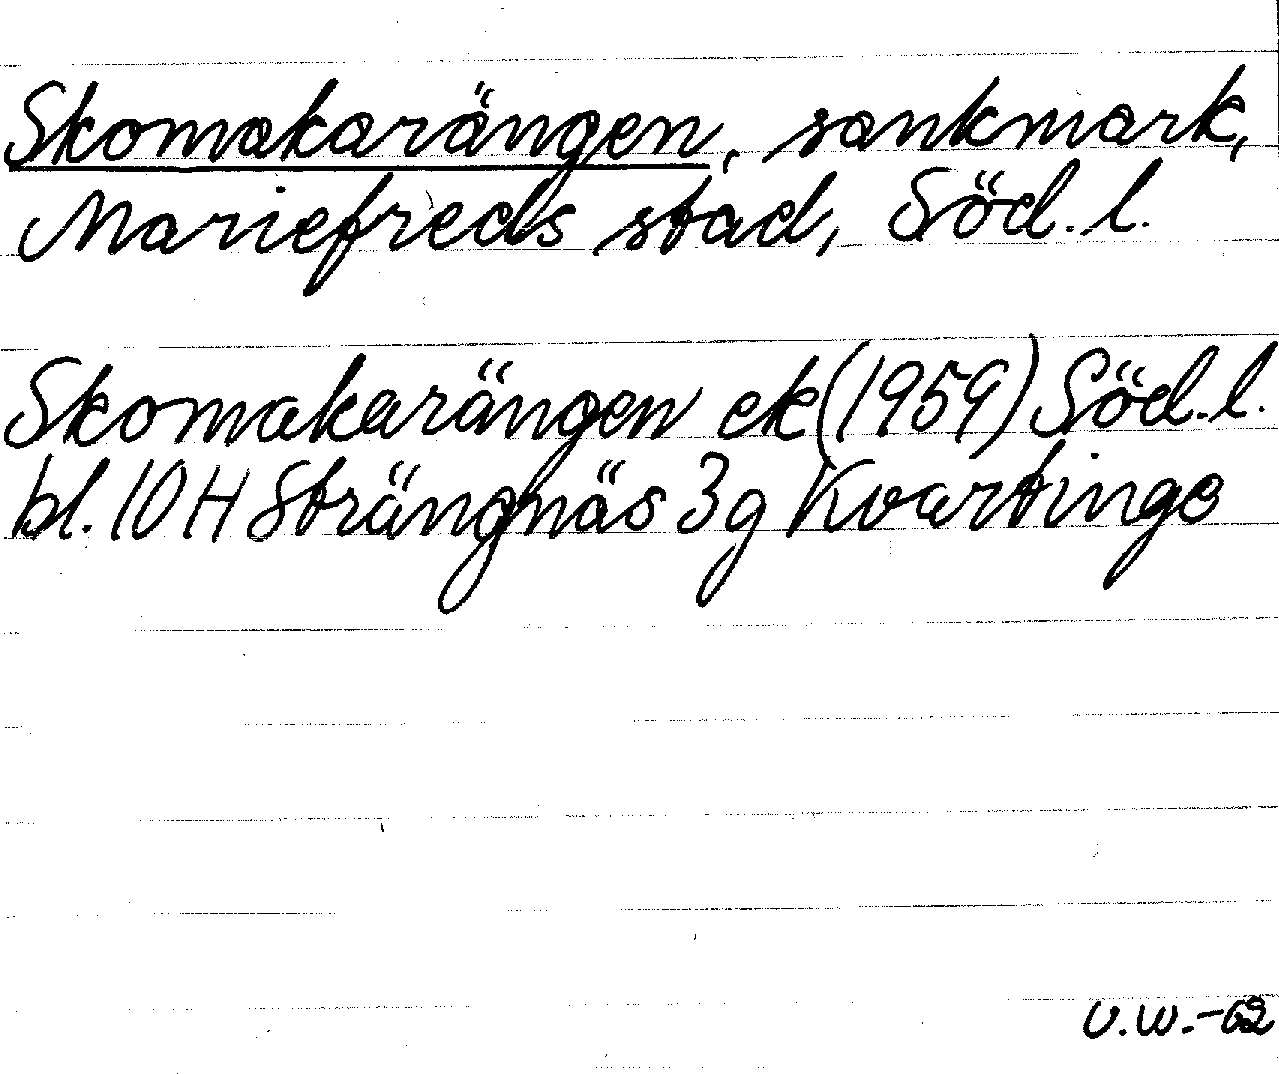 Skomakarängen, sankmark,
Mariefreds stad, Söd. l.
Skomakarängen ek (1959) Söd. l.
bl. 10 H Strängnäs 3 g Kvartinge
U.W.-62